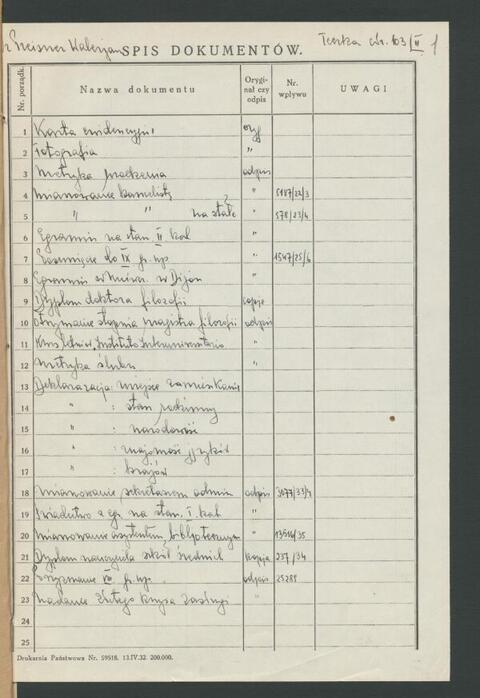 Preisner Walerjan SPIS DOKUMENTÓW. Teczka Nr. 103/II 1
Nr. porządk. Nazwa dokumentu Orygi- nał czy odpis Nr. wpływu UWAGI
1 Karta ewidencyjna oryg
2 Fotografia "
3 Metryka urodzenia odpis
4 Mianowanie kancelistą " 5187/22/3
5 " " na stałe " 578/23/4
6 Egzamin na stan. II kat "
7 Posunięcie do IX gr. up. " 1547/25/6
8 Egzamin w Uniw. w Dijon "
9 Dyplom doktora filozofii kopja
10 Otrzymanie stopnia magistra filozofii odpis
11 Kurs letni w Instituto Interuniversitario "
12 Metryka ślubu "
13 Deklaracja: miejsce zamieszkania
14 " : stan rodzinny
15 " : narodowość
16 " : znajomość języków
17 " : krajów
18 Mianowanie sekretarzem admin odpis 3077/33/4
19 Świadectwo z egz. na stan. I. kat "
20 Mianowanie asystentem bibliotecznym " 13516/35
21 Dyplom nauczyciela szkół średnich kopja 237/34
22 Przyznanie VII gr. up. odpis 25288
23 Nadanie Złotego Krzyża Zasługi "
24
25
Drukarnia Państwowa Nr. 59518. 13.IV.32. 200.000.